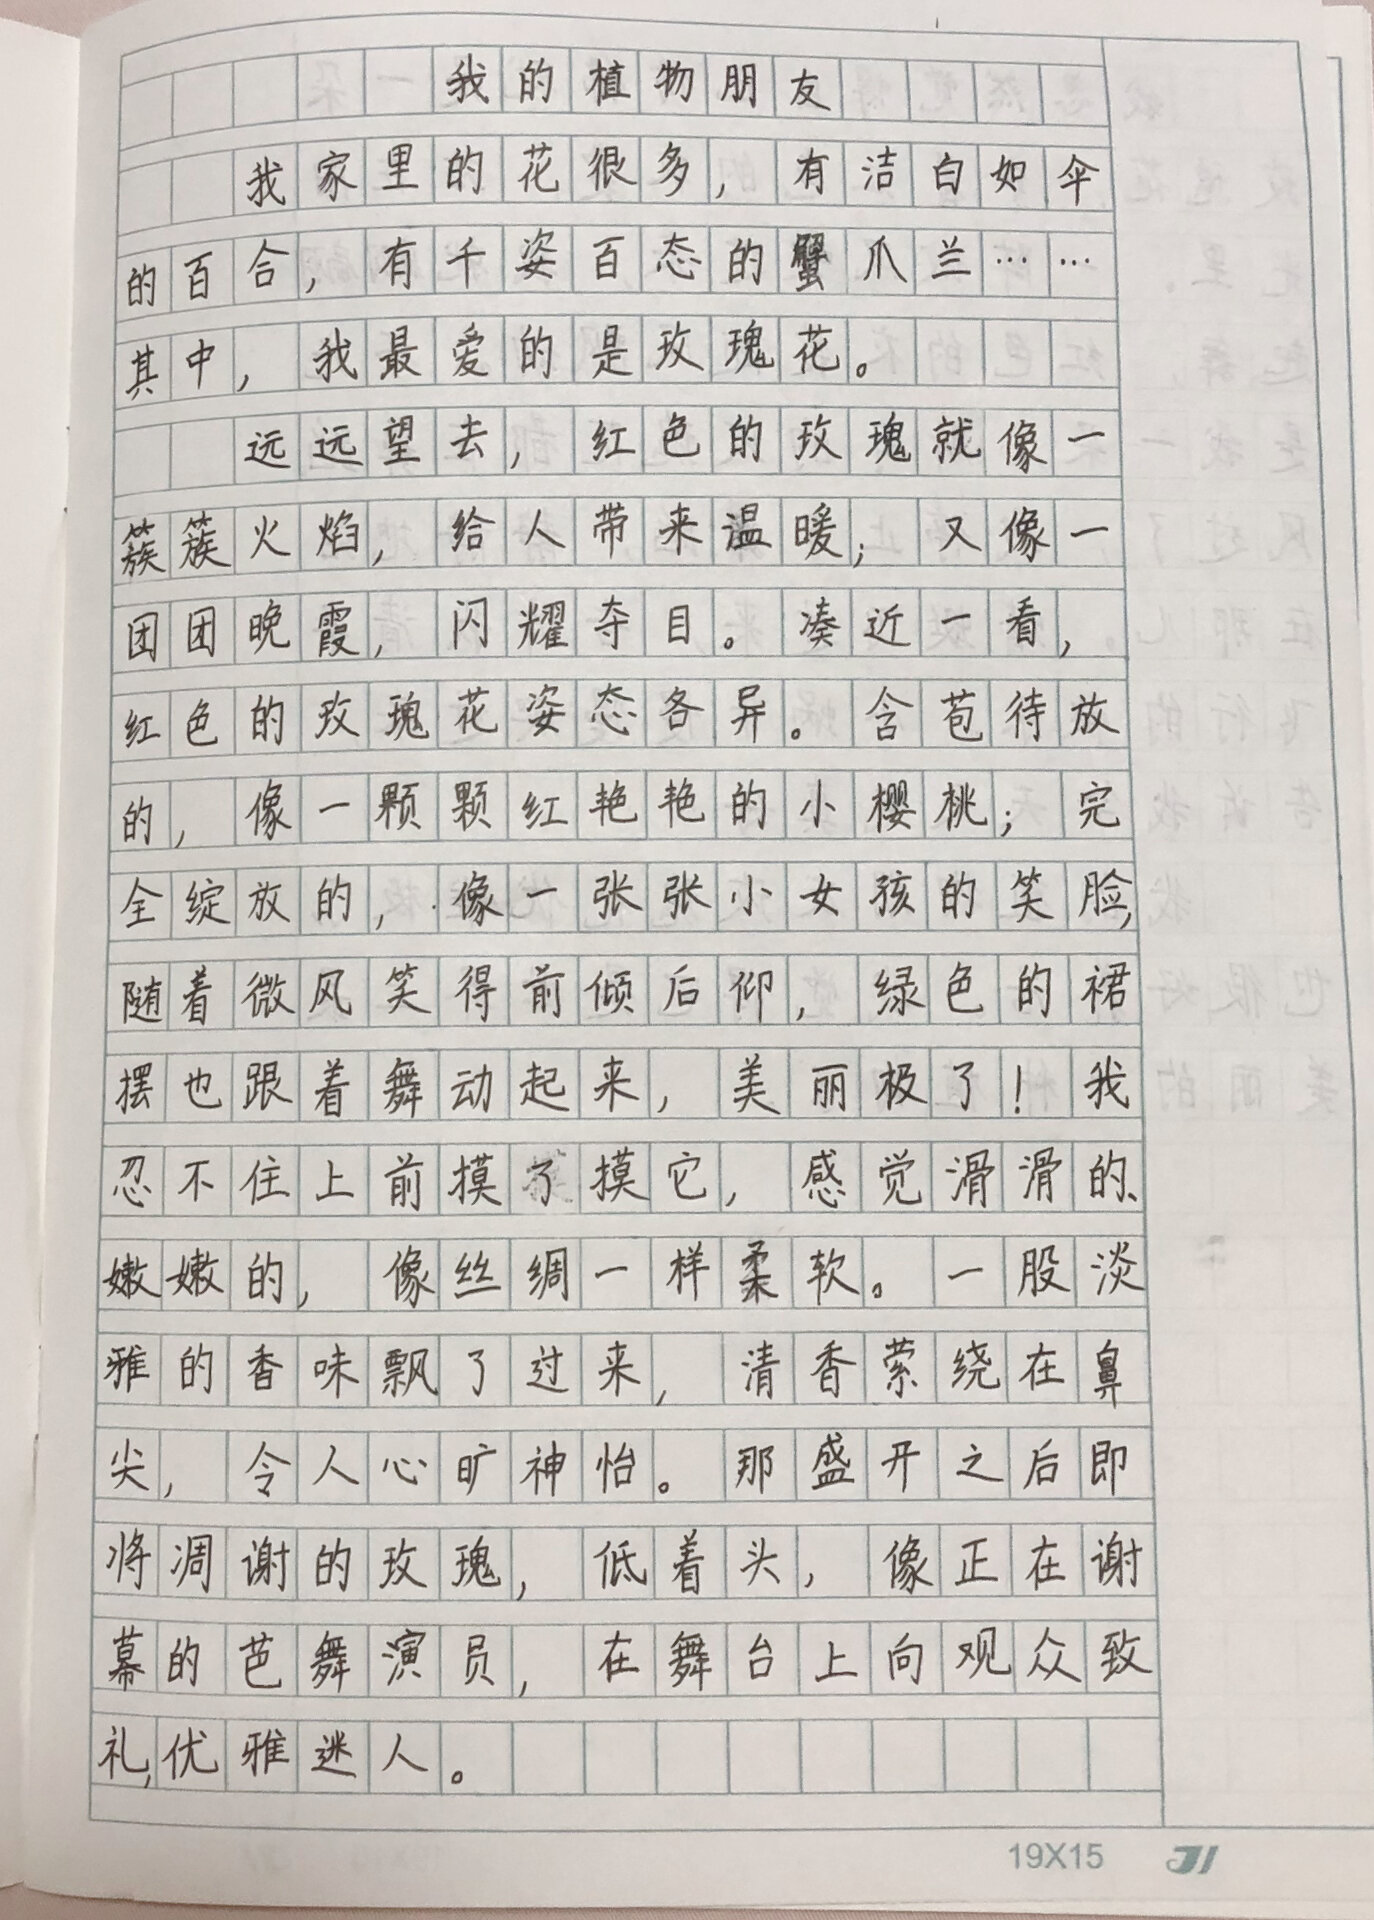 我的植物朋友
我家里的花很多，有洁白如伞
的百合，有千姿百态的蟹爪兰……
其中，我最爱的是玫瑰花。
远远望去，红色的玫瑰就像一
簇簇火焰，给人带来温暖；又像一
团团晚霞，闪耀夺目。凑近一看，
红色的玫瑰花姿态各异。含苞待放
的，像一颗颗红艳艳的小樱桃；完
全绽放的，像一张张小女孩的笑脸，
随着微风笑得前倾后仰，绿色的裙
摆也跟着舞动起来，美丽极了！我
忍不住上前摸了摸它，感觉滑滑的、
嫩嫩的，像丝绸一样柔软。一股淡
雅的香味飘了过来，清香萦绕在鼻
尖，令人心旷神怡。那盛开之后即
将凋谢的玫瑰，低着头，像正在谢
幕的芭舞演员，在舞台上向观众致
礼，优雅迷人。
19X15